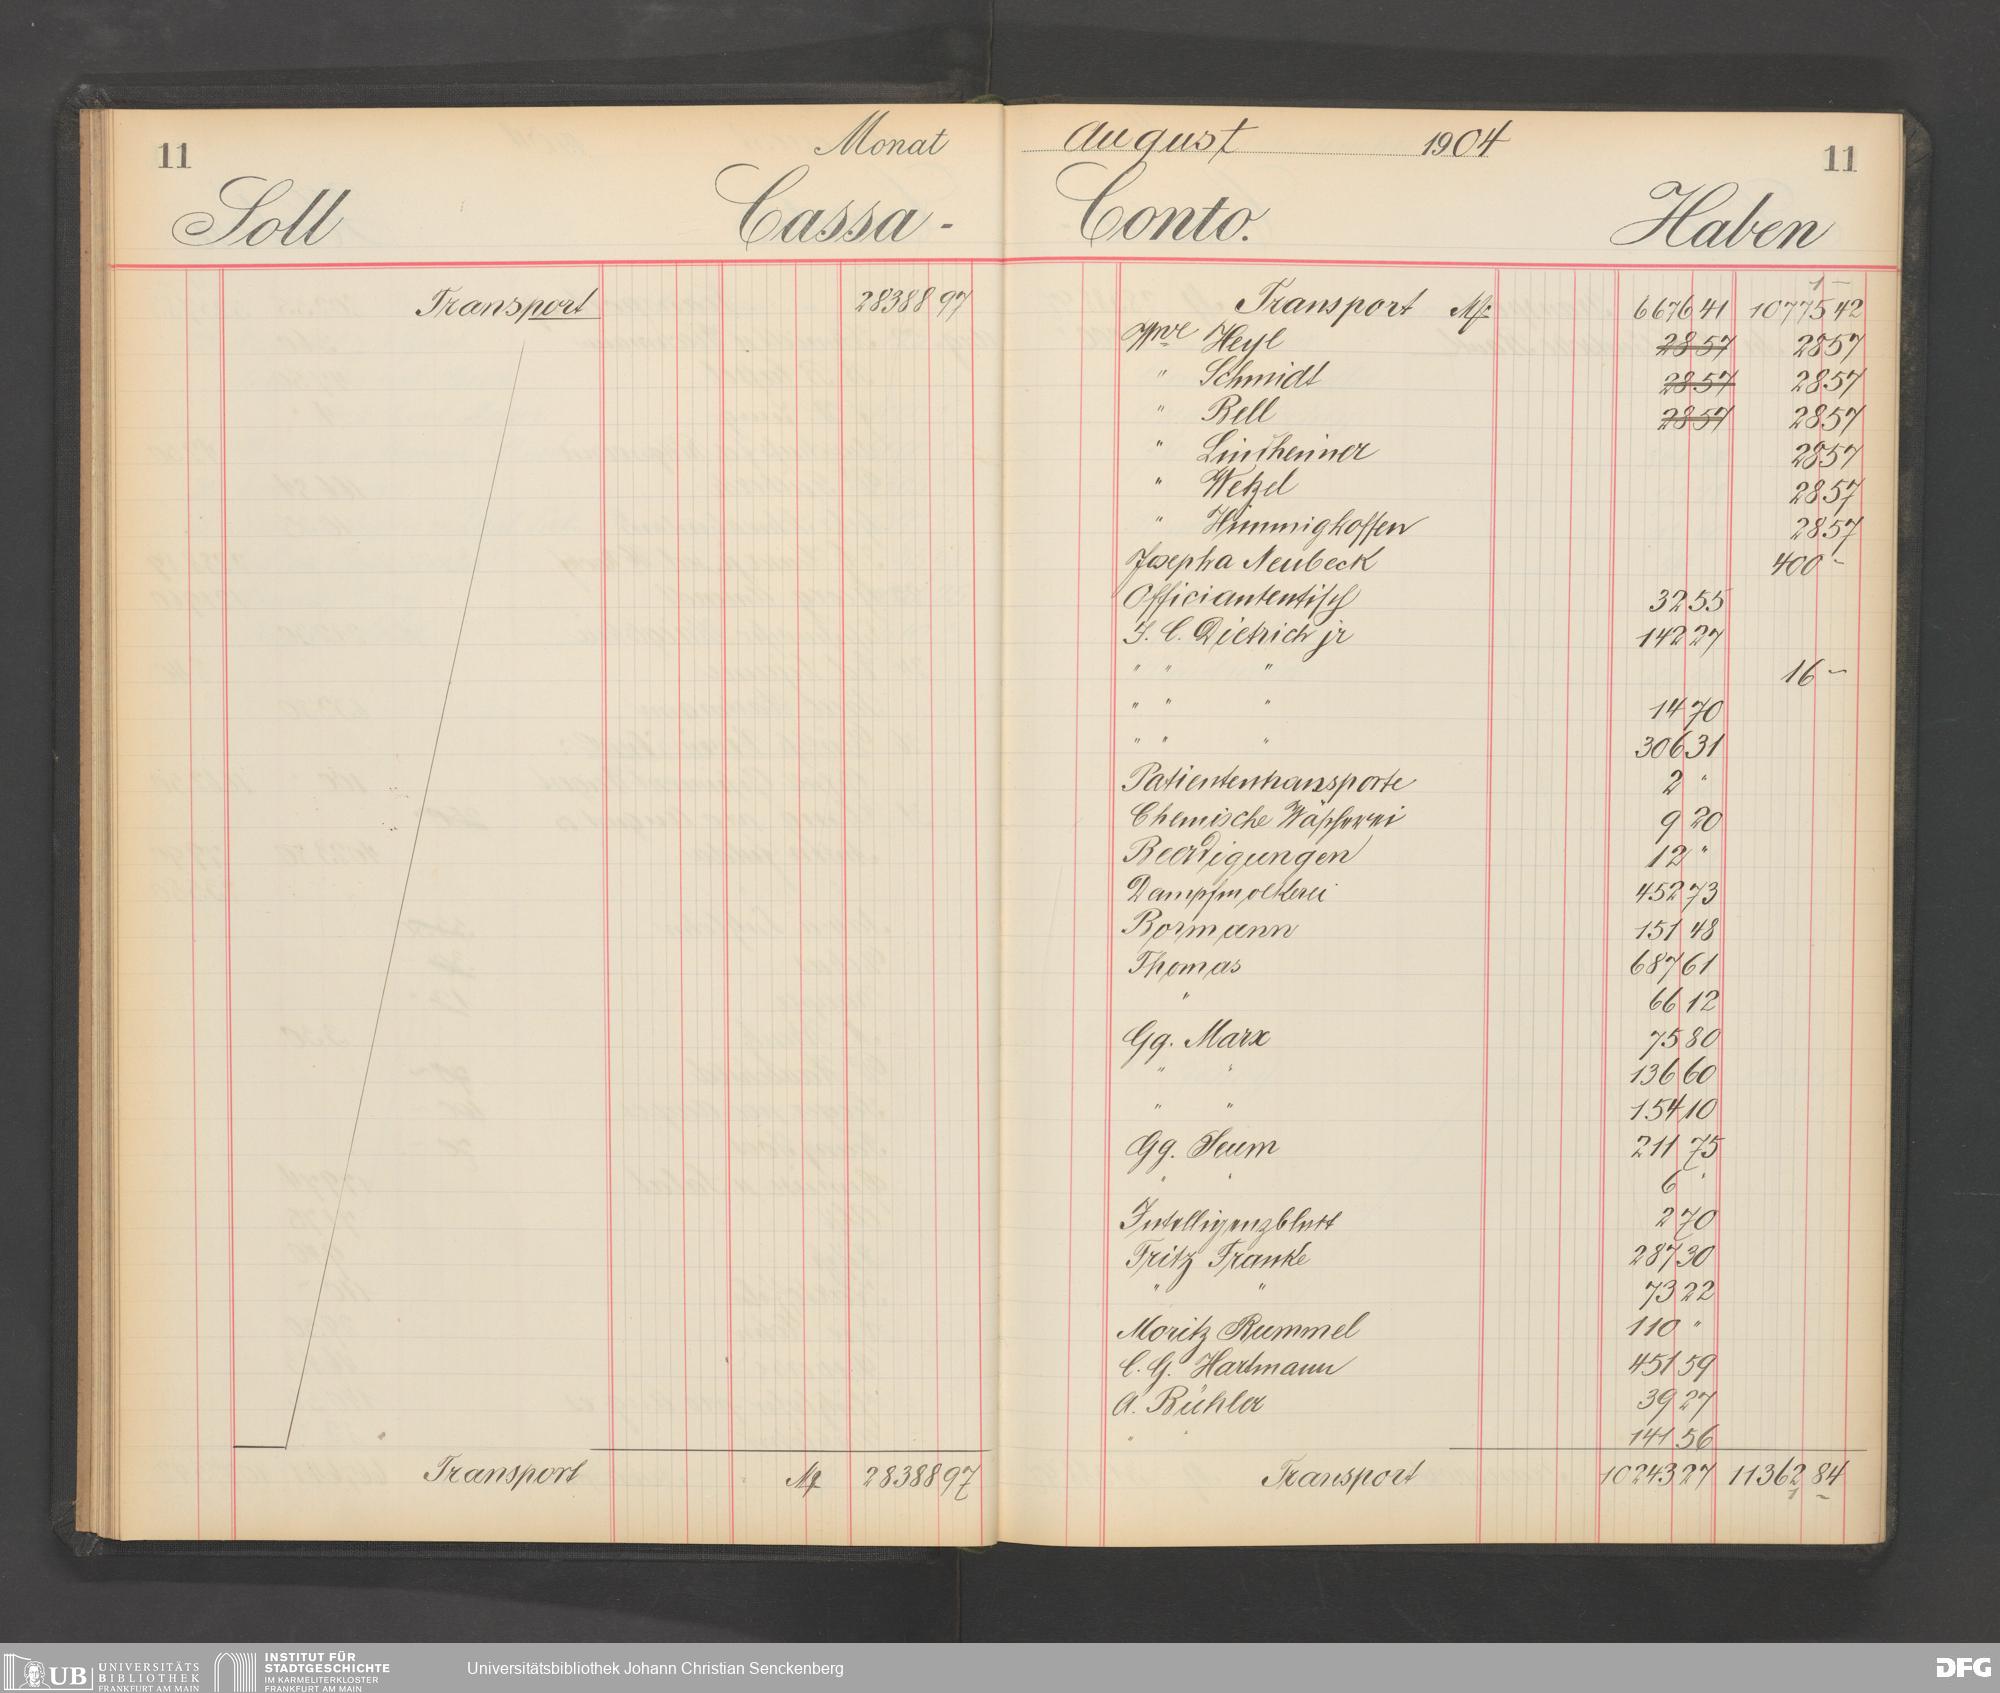 11
Monat
Soll
Cassa -
Transport 28388 97
Transport M 28388 97
August 1904
11
Conto.
Haben
1 –
Transport M 6676 41 10775 42
Wwe Heyl 28 57 28 57
" Schmidt 28 57 28 57
" Bell 28 57 28 57
" Lindheimer 28 57
" Wetzel 28 57
" Himmighoffen 28 57
Josepha Neubeck 400 -
Officiantentisch 32 55
J. C. Dietrich jr 142 27
" " " 16 –
" " " 14 70
" " " 306 31
Patiententransporte 2 "
Chemische Wäscherei 9 20
Beerdigungen 12 "
Dampfmolkerei 452 73
Bormann 151 48
Thomas 687 61
" 66 12
Gg. Marx 75 80
" " 136 60
" " 154 10
Gg. Seum 211 75
" " 6 "
Intelligenzblatt 2 70
Fritz Franke 287 30
" " 73 22
Moritz Rummel 110 "
C. G. Hartmann 451 59
A. Bühler 39 27
" " 141 56
Transport 10243 27 11362 84
1 –
UB UNIVERSITÄTS
BIBLIOTHEK
FRANKFURT AM MAIN
INSTITUT FÜR
STADTGESCHICHTE
IM KARMELITERKLOSTER
FRANKFURT AM MAIN
Universitätsbibliothek Johann Christian Senckenberg
DFG